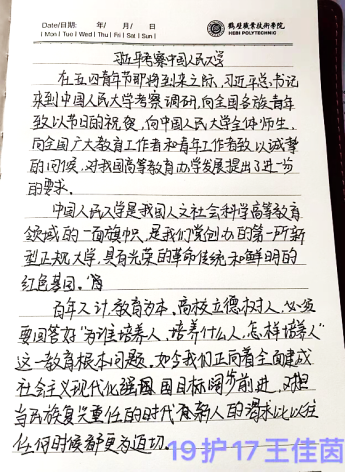 Date/日期: 年/ 月/ 日
| Mon | Tue | Wed | Thu | Fri | Sat | Sun |
鹤壁职业技术学院
HEBI POLYTECHNIC
习近平考察中国人民大学
在五四青年节即将到来之际,习近平总书记
来到中国人民大学考察调研,向全国各族青年
致以节日的祝贺,向中国人民大学全体师生,
向全国广大教育工作者和青年工作者致以诚挚
的问候,对我国高等教育办学发展提出了进一步
的要求。
中国人民大学是我国人文社会科学高等教育
领域的一面旗帜,是我们党创办的第一所新
型正规大学,具有光荣的革命传统和鲜明的
红色基因。
百年大计,教育为本,高校立德树人,必须
要回答好“为谁培养人,培养什么人,怎样培养人”
这一教育根本问题。如今我们正向着全面建成
社会主义现代化强国目标阔步前进,对担
当民族复兴重任的时代新人的渴求比以往
任何时候都更为迫切。
19护17王佳茵